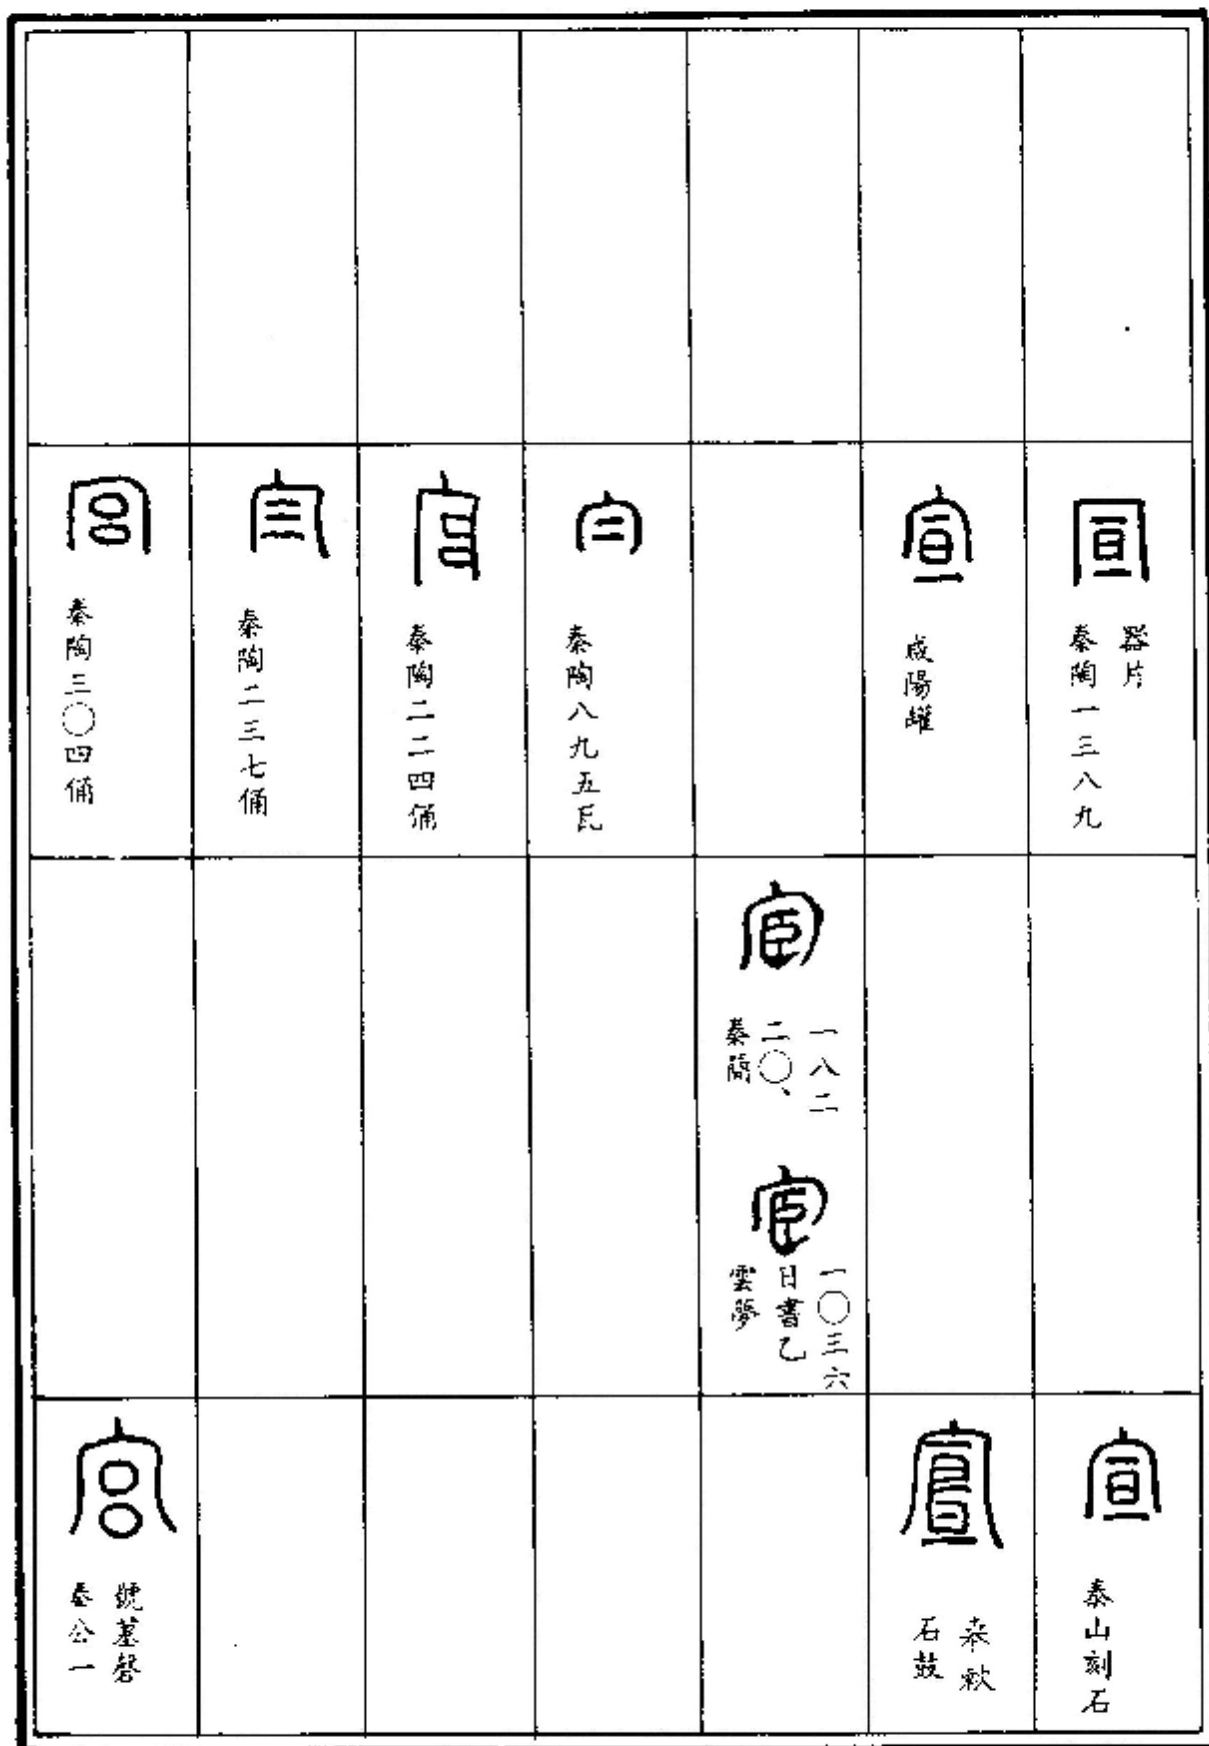 宣
秦陶一三八九
器片
宣
咸陽罐
秦陶八九五瓦
官
秦陶二二四俑
秦陶二三七俑
宮
秦陶三〇四俑
宦
秦簡
二〇、
一八二
宦
雲夢
日書乙
一〇三六
宣
泰山刻石
石鼓
宮
秦公一
號墓磬